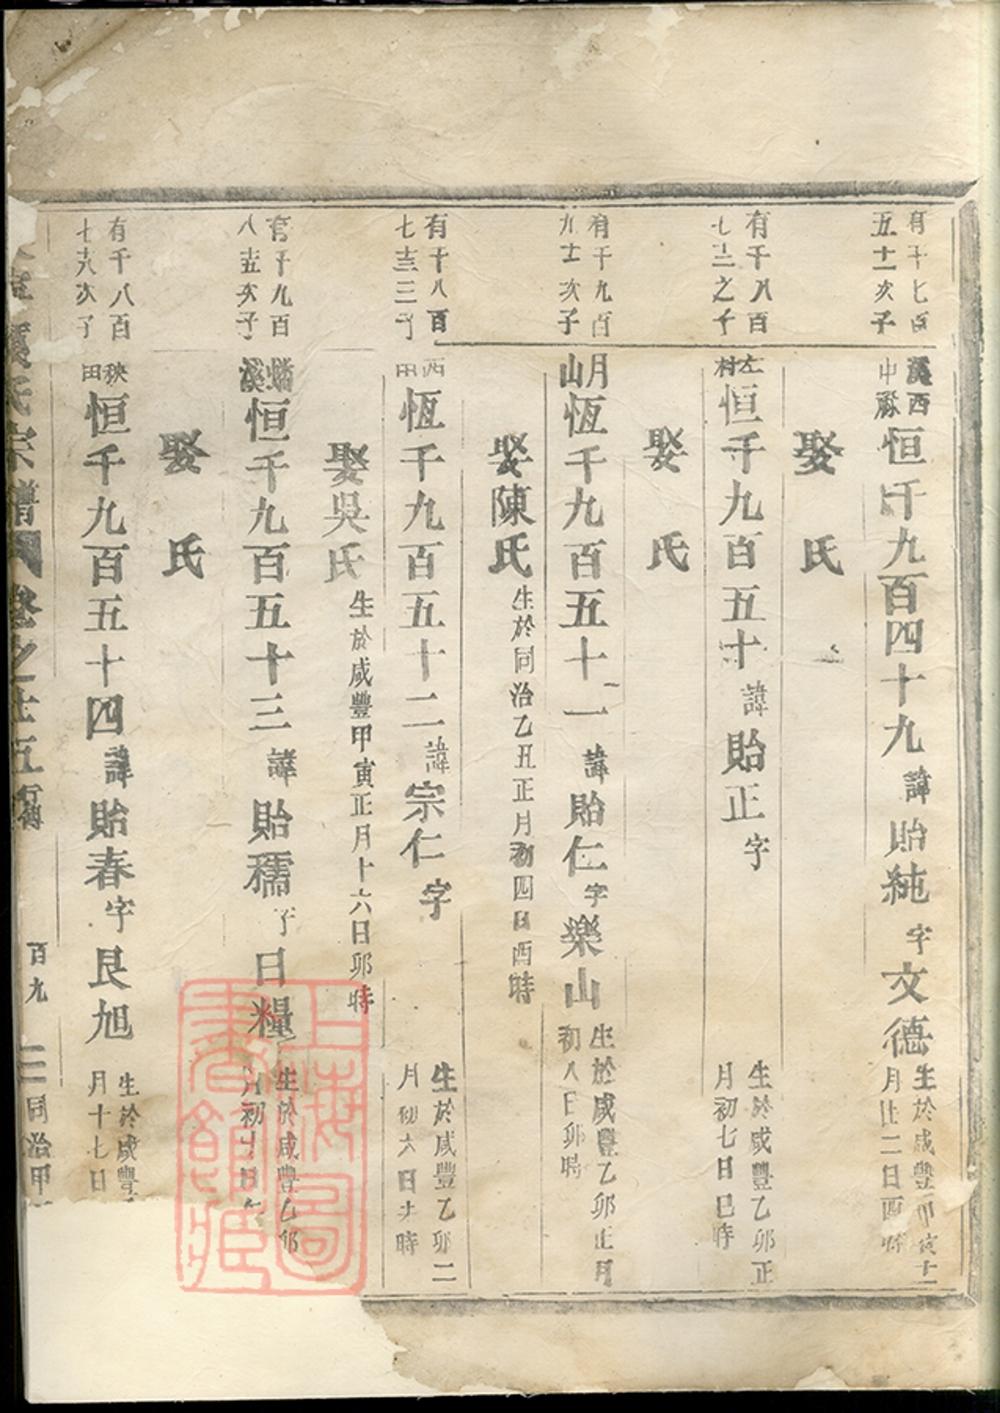 有千七百
五十一次子
溪西
中
恒千九百四十九諱貽純字文德
生於咸豐甲寅十二
月廿二日酉時
娶 氏
有千八百
之子
左村
恒千九百五十諱貽正字
生於咸豐乙卯正
月初七日巳時
娶 氏
有千九百
九十次子
月山
恆千九百五十一諱貽仁字樂山
生於咸豐乙卯正月
初八日卯時
娶陳氏
生於同治乙丑正月初四日酉時
有千八百
三子
西田
恆千九百五十二諱宗仁字
生於咸豐乙卯二
月初六日 時
娶吳氏
生於咸豐甲寅正月十六日卯時
有千九百
八十五次子
蟠溪
恒千九百五十三諱貽穤字日糧
生於咸豐乙卯
月初 日
娶 氏
有千八百
七十六次子
秧田
恒千九百五十四諱貽春字艮旭
生於咸豐
月十七日
氏宗譜 卷之廿五 行傳 百九 同治甲
上海圖書館藏